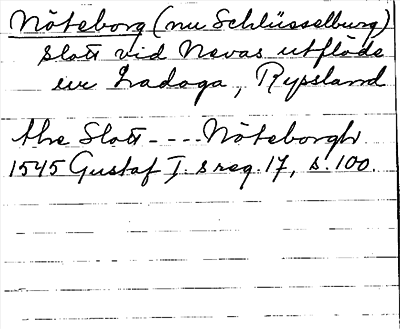 Nöteborg (nu Schlüsselburg)
slott vid Nevas utflöde
ur Ladoga, Ryssland
the Slott - - - - Nöteborgh
1545 Gustaf I. s reg. 17, s. 100.